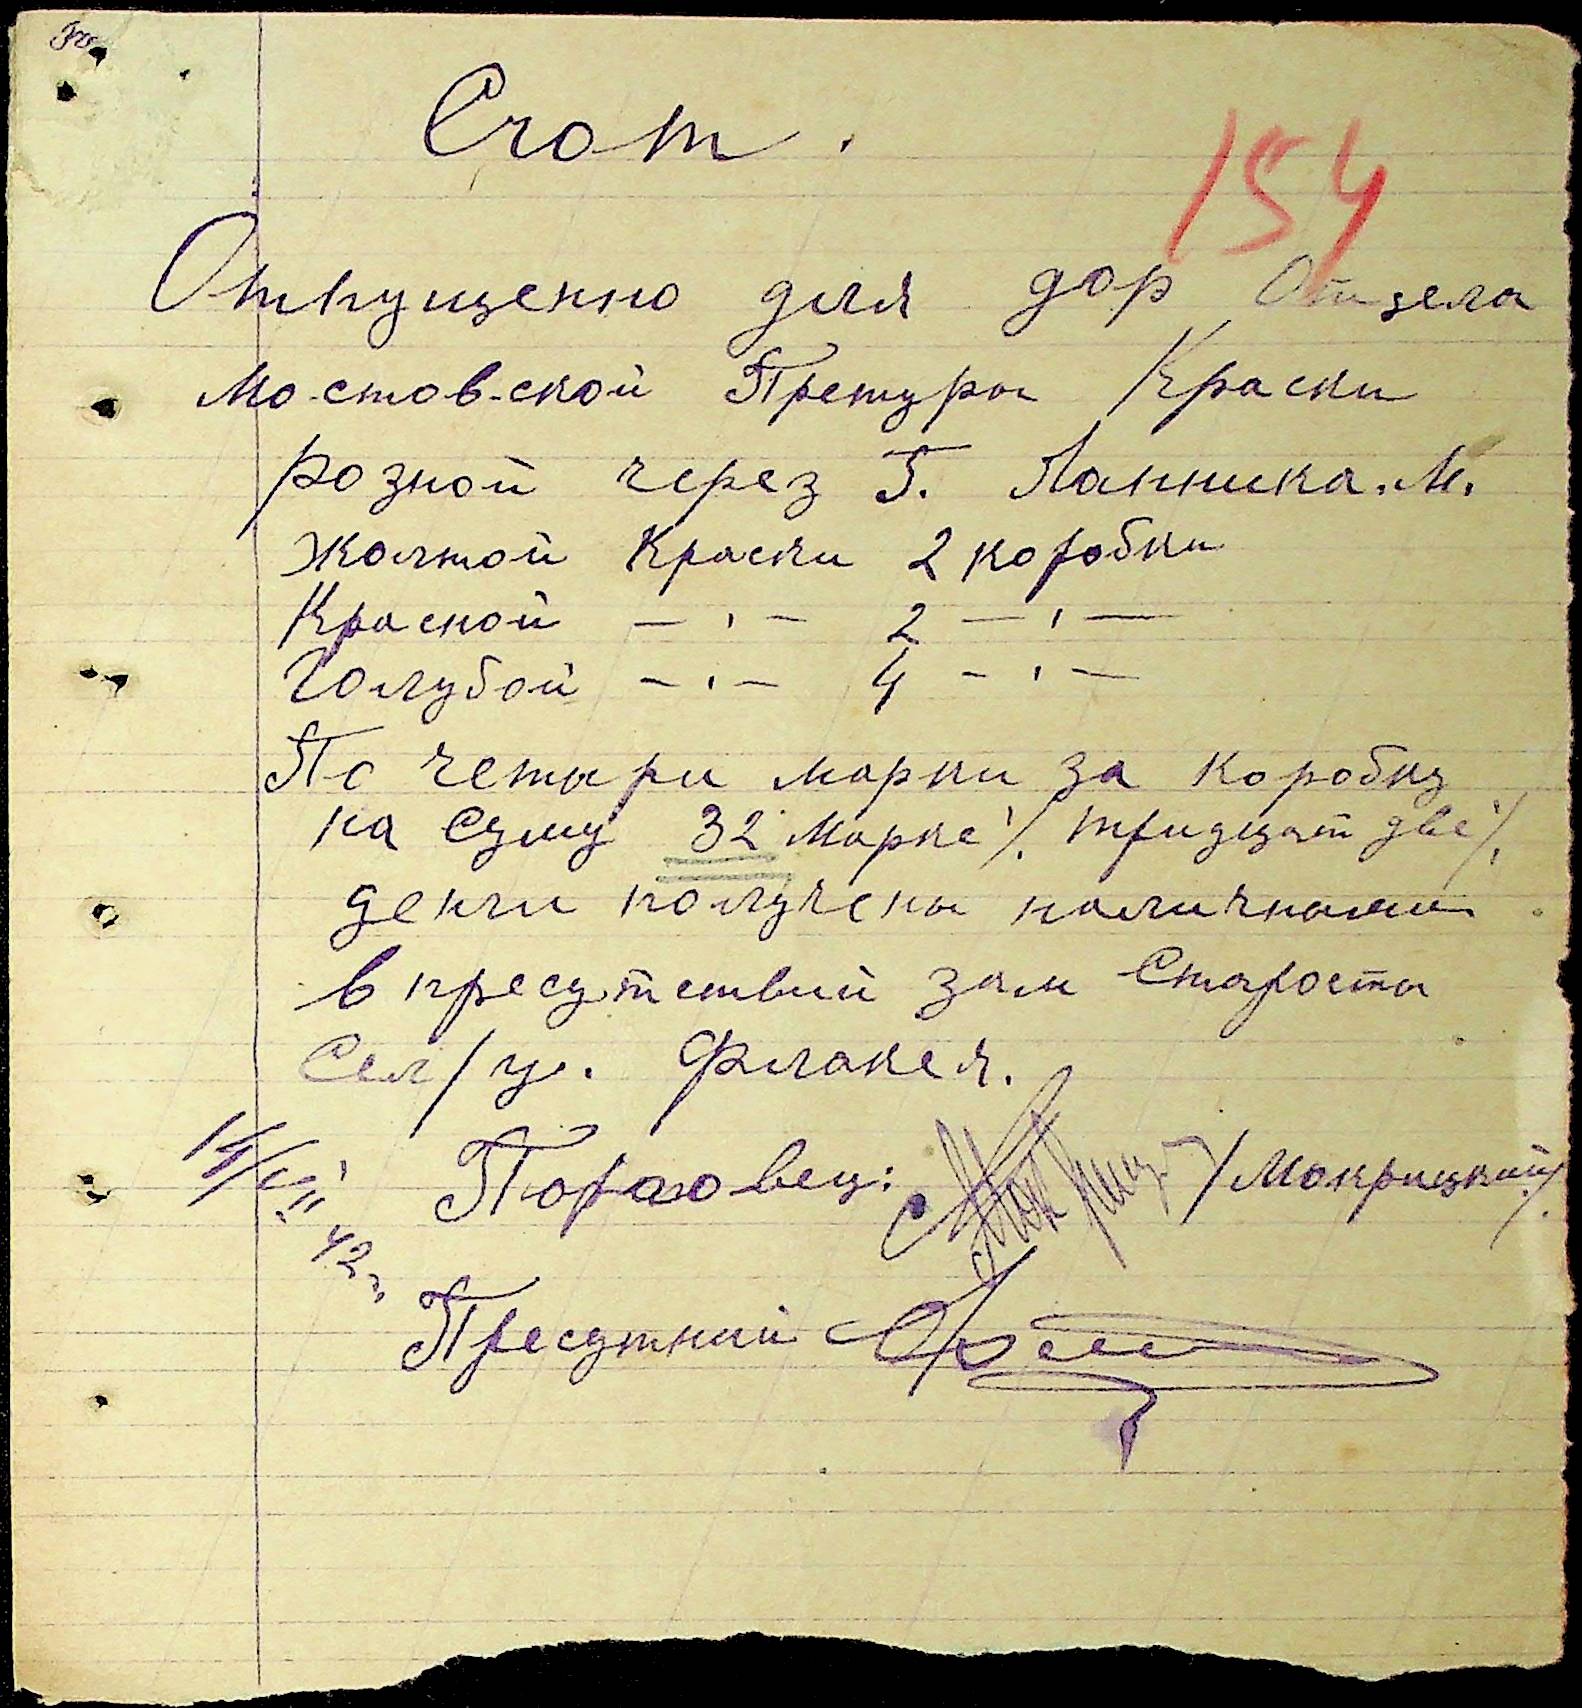 Счот.
154
Откущенно для дор Отдела
Мостовской Претуры Краски
розной через Г. Ланника. М.
Жолтой Краски 2 коробки
Красной —·— 2 —·—
Голубой —·— 4 —·—
По четыри марки за коробку
на Суму 32 марке /. тридцат две /.
денги получены наличнами
в пресутствий зам Старосты
Сел/у. Флакея.
14/VIII 42г.
Торговец: /Мокрицкий/.
Пресутний